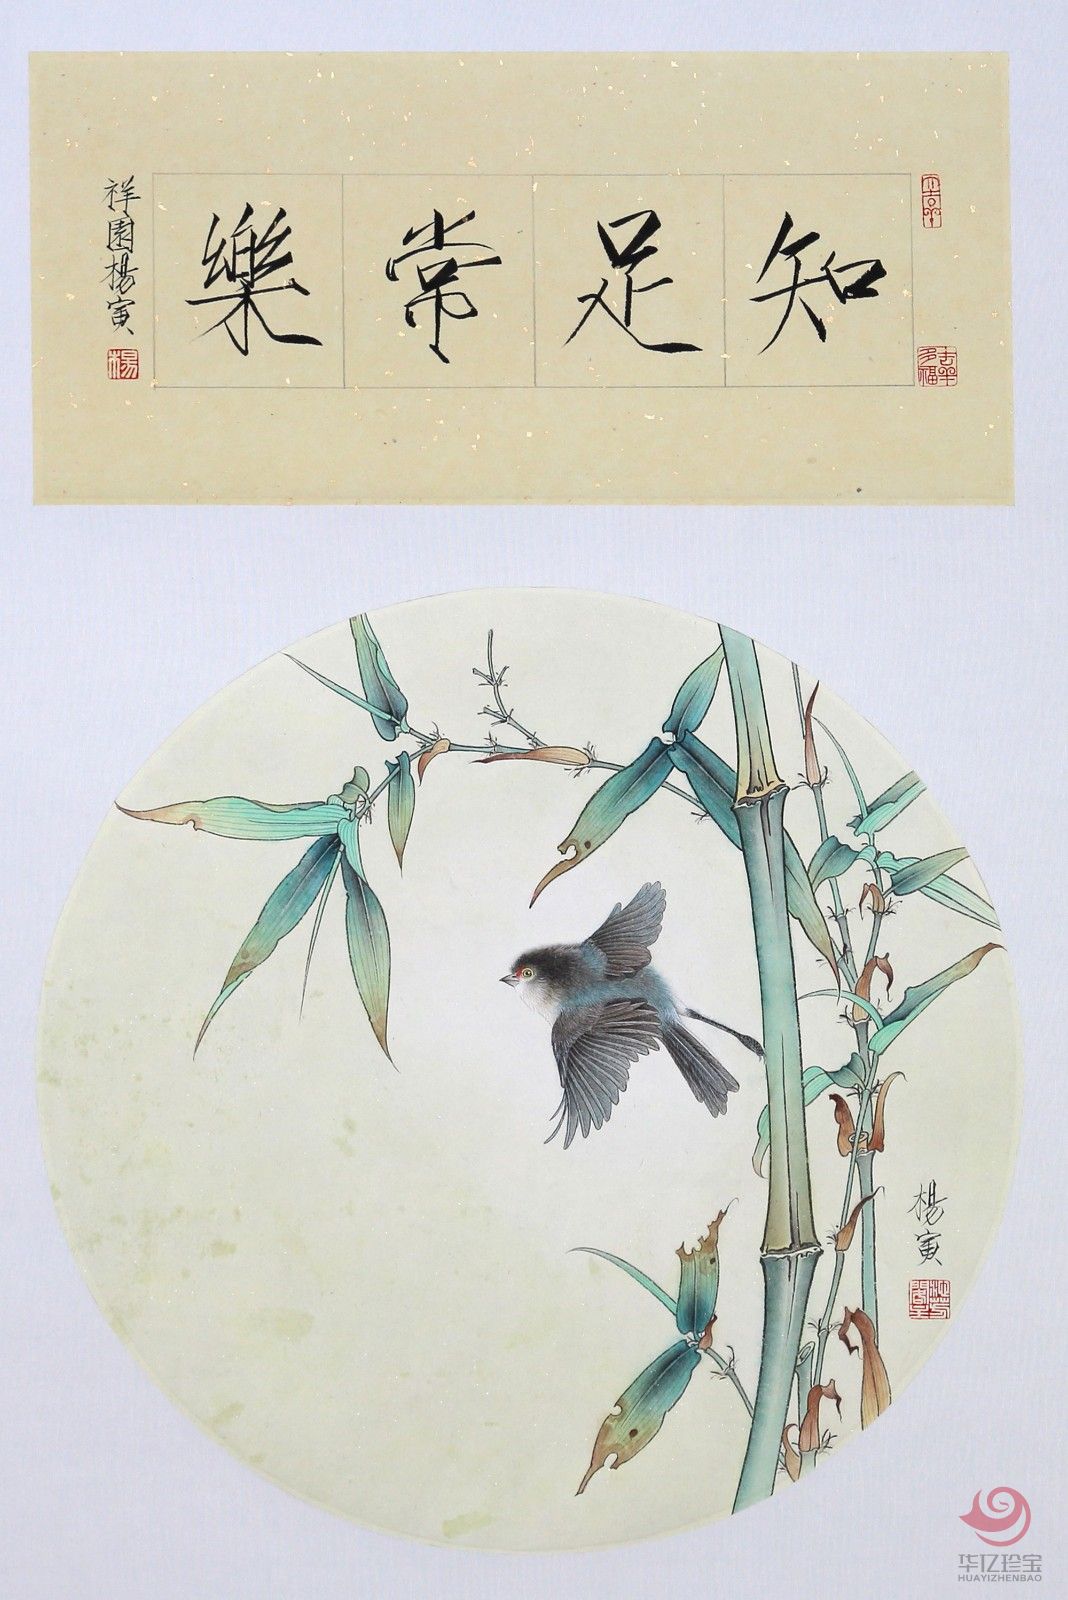 知足常樂
祥園楊寅
楊
楊寅
华亿珍宝
HUAYIZHENBAO